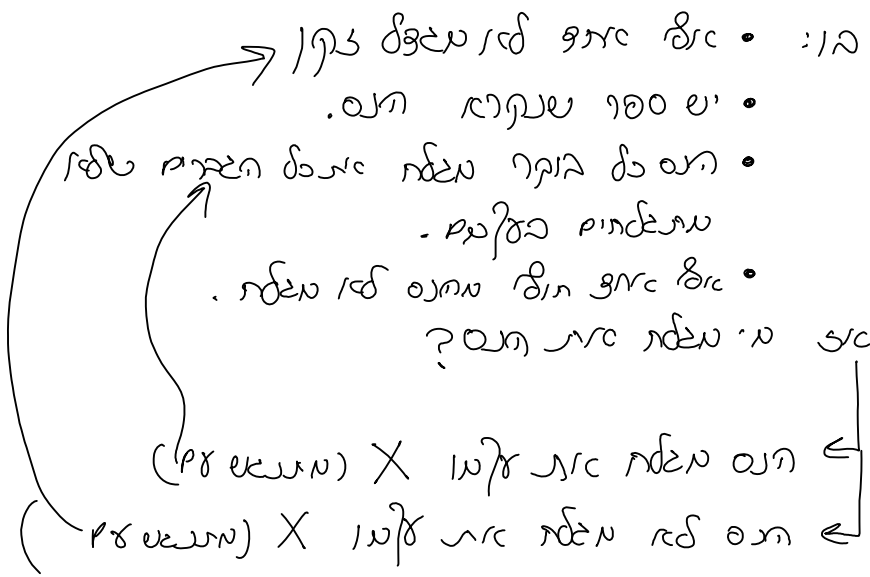 בו: • אף אחד לא מגדל זקן
• יש ספר שנקרא הנס.
• הנס כל בוקר מגלח את כל הגברים שלא
מתגלחים בעצמם.
• אף אחד חוץ מהנס לא מגלח.
אז מי מגלח את הנס?
הנס מגלח את עצמו X (מתנגש עם)
הנס לא מגלח את עצמו X (מתנגש עם)